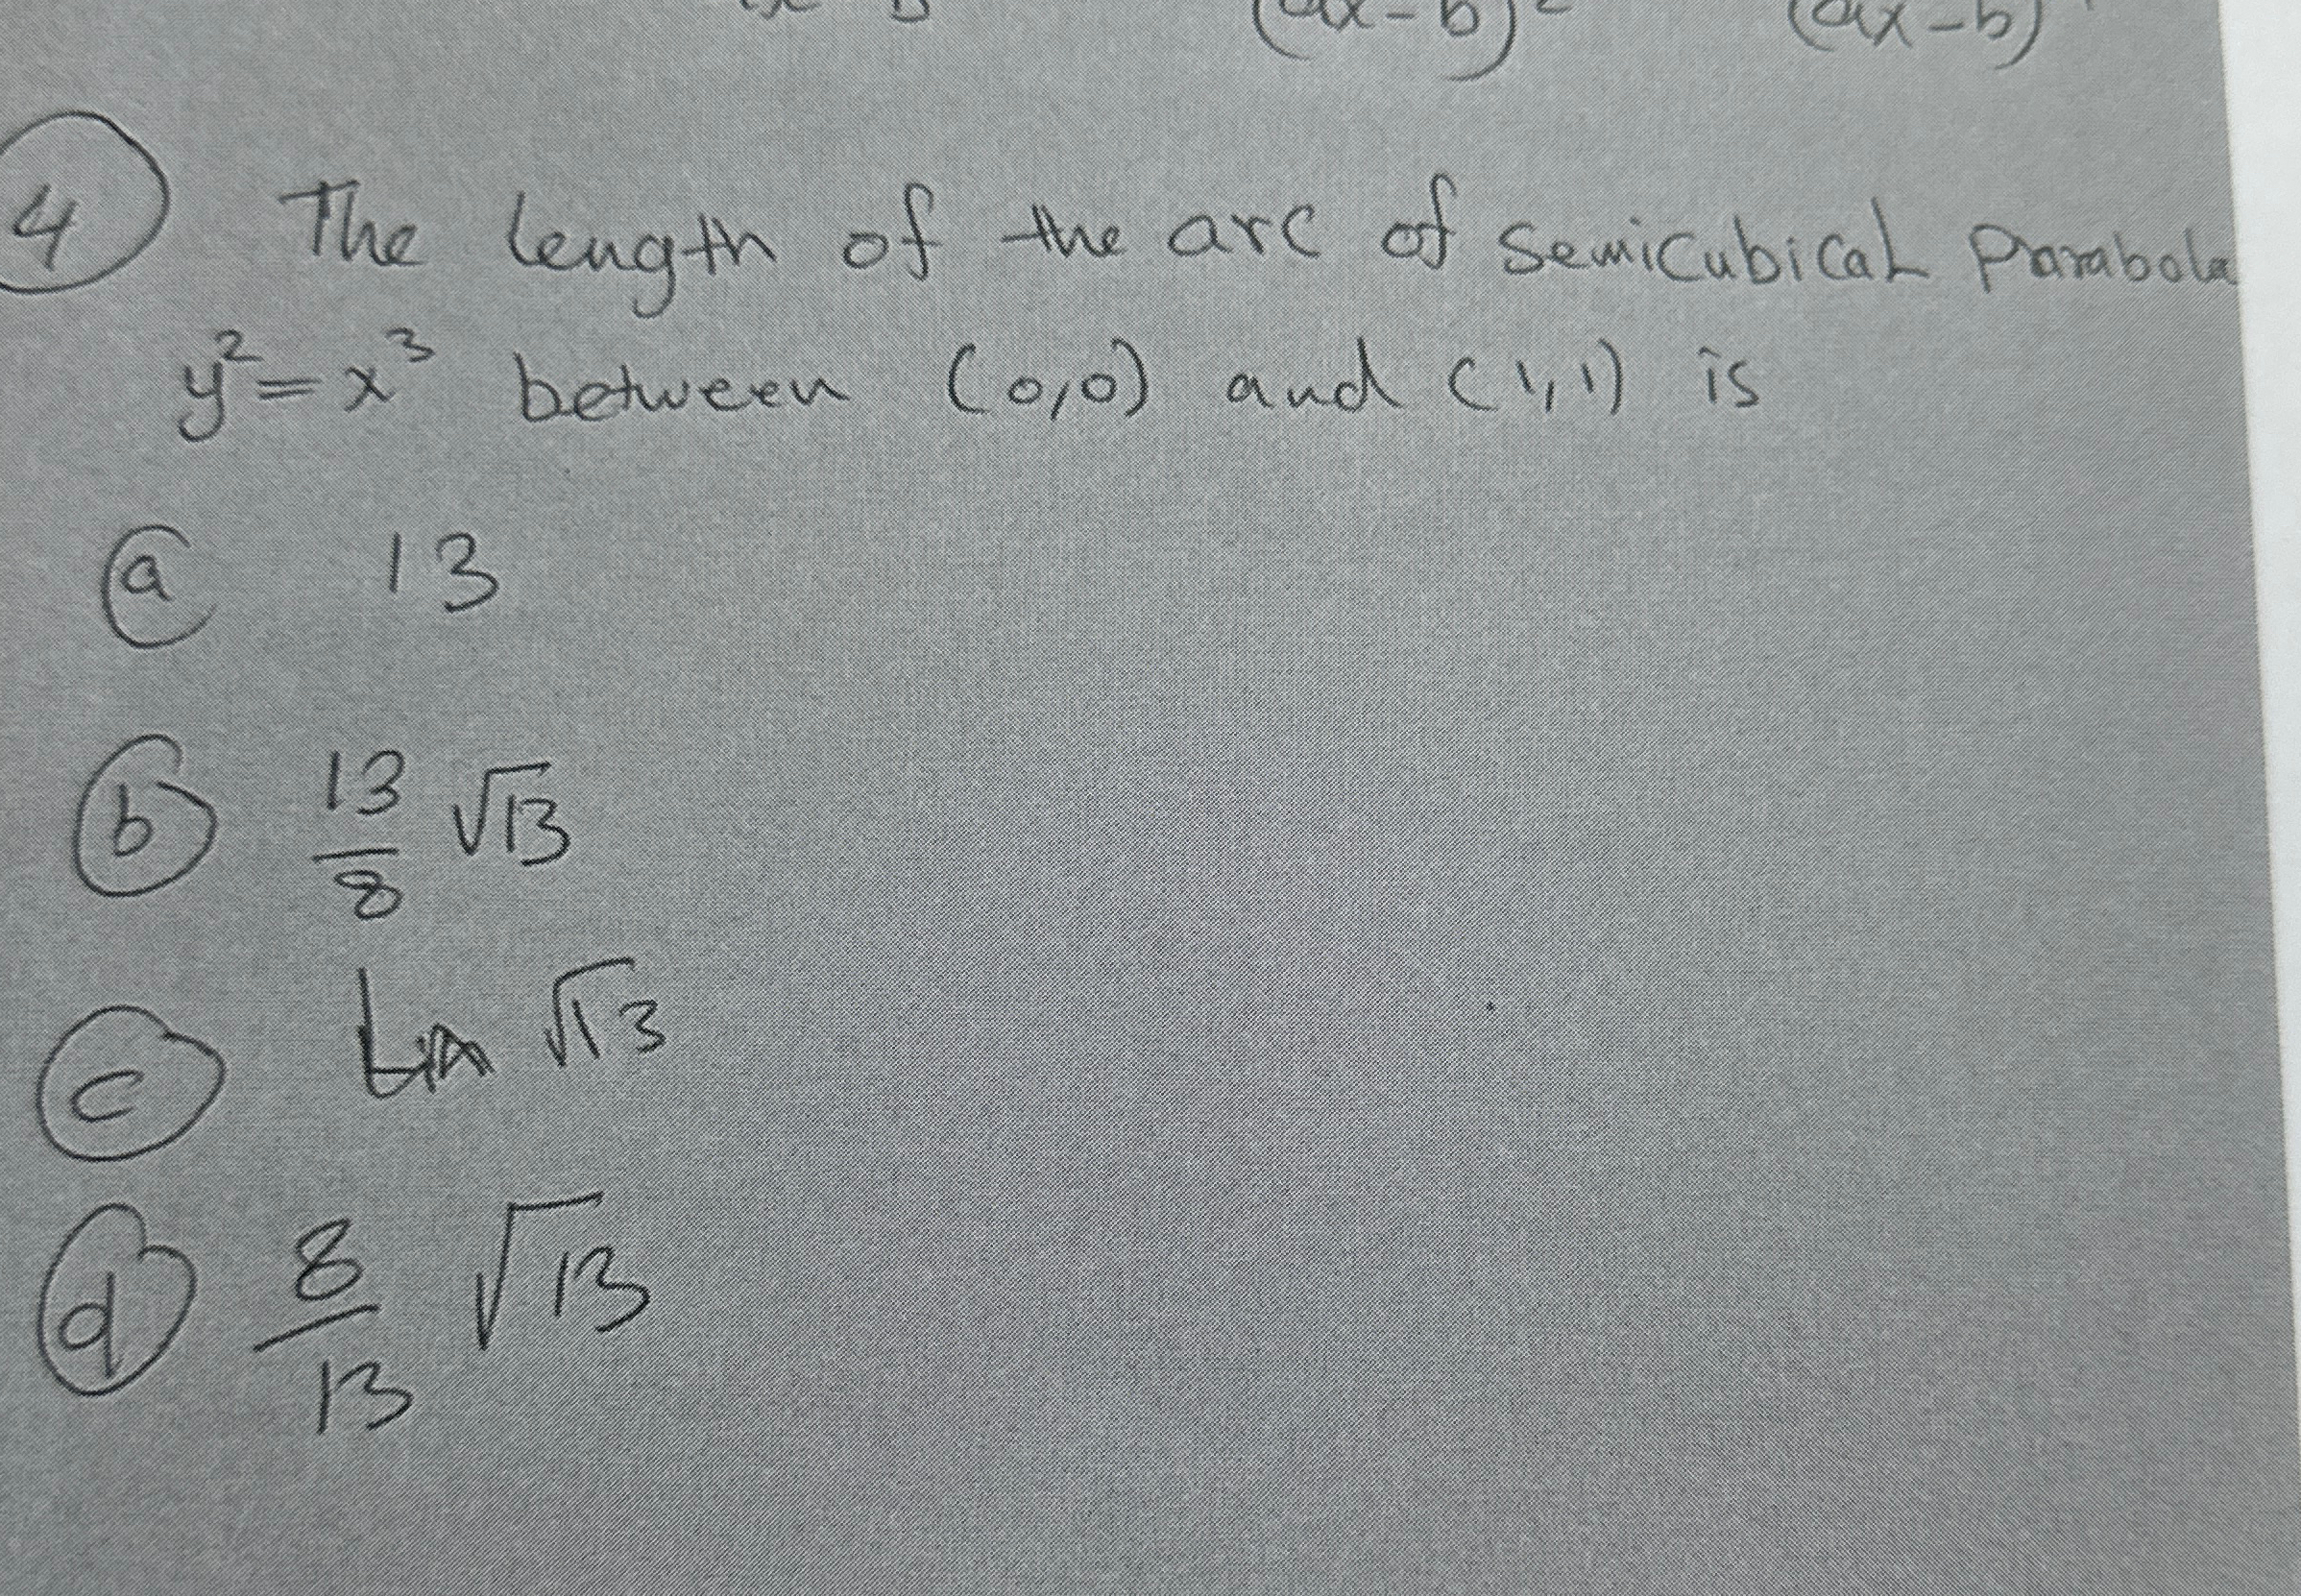 (ax-b)² (ax-b)
4 The length of the arc of Semicubical Parabola
y² = x³ between (0,0) and (1,1) is
a 13
b 13/8 √13
c √13
d 8/13 √13